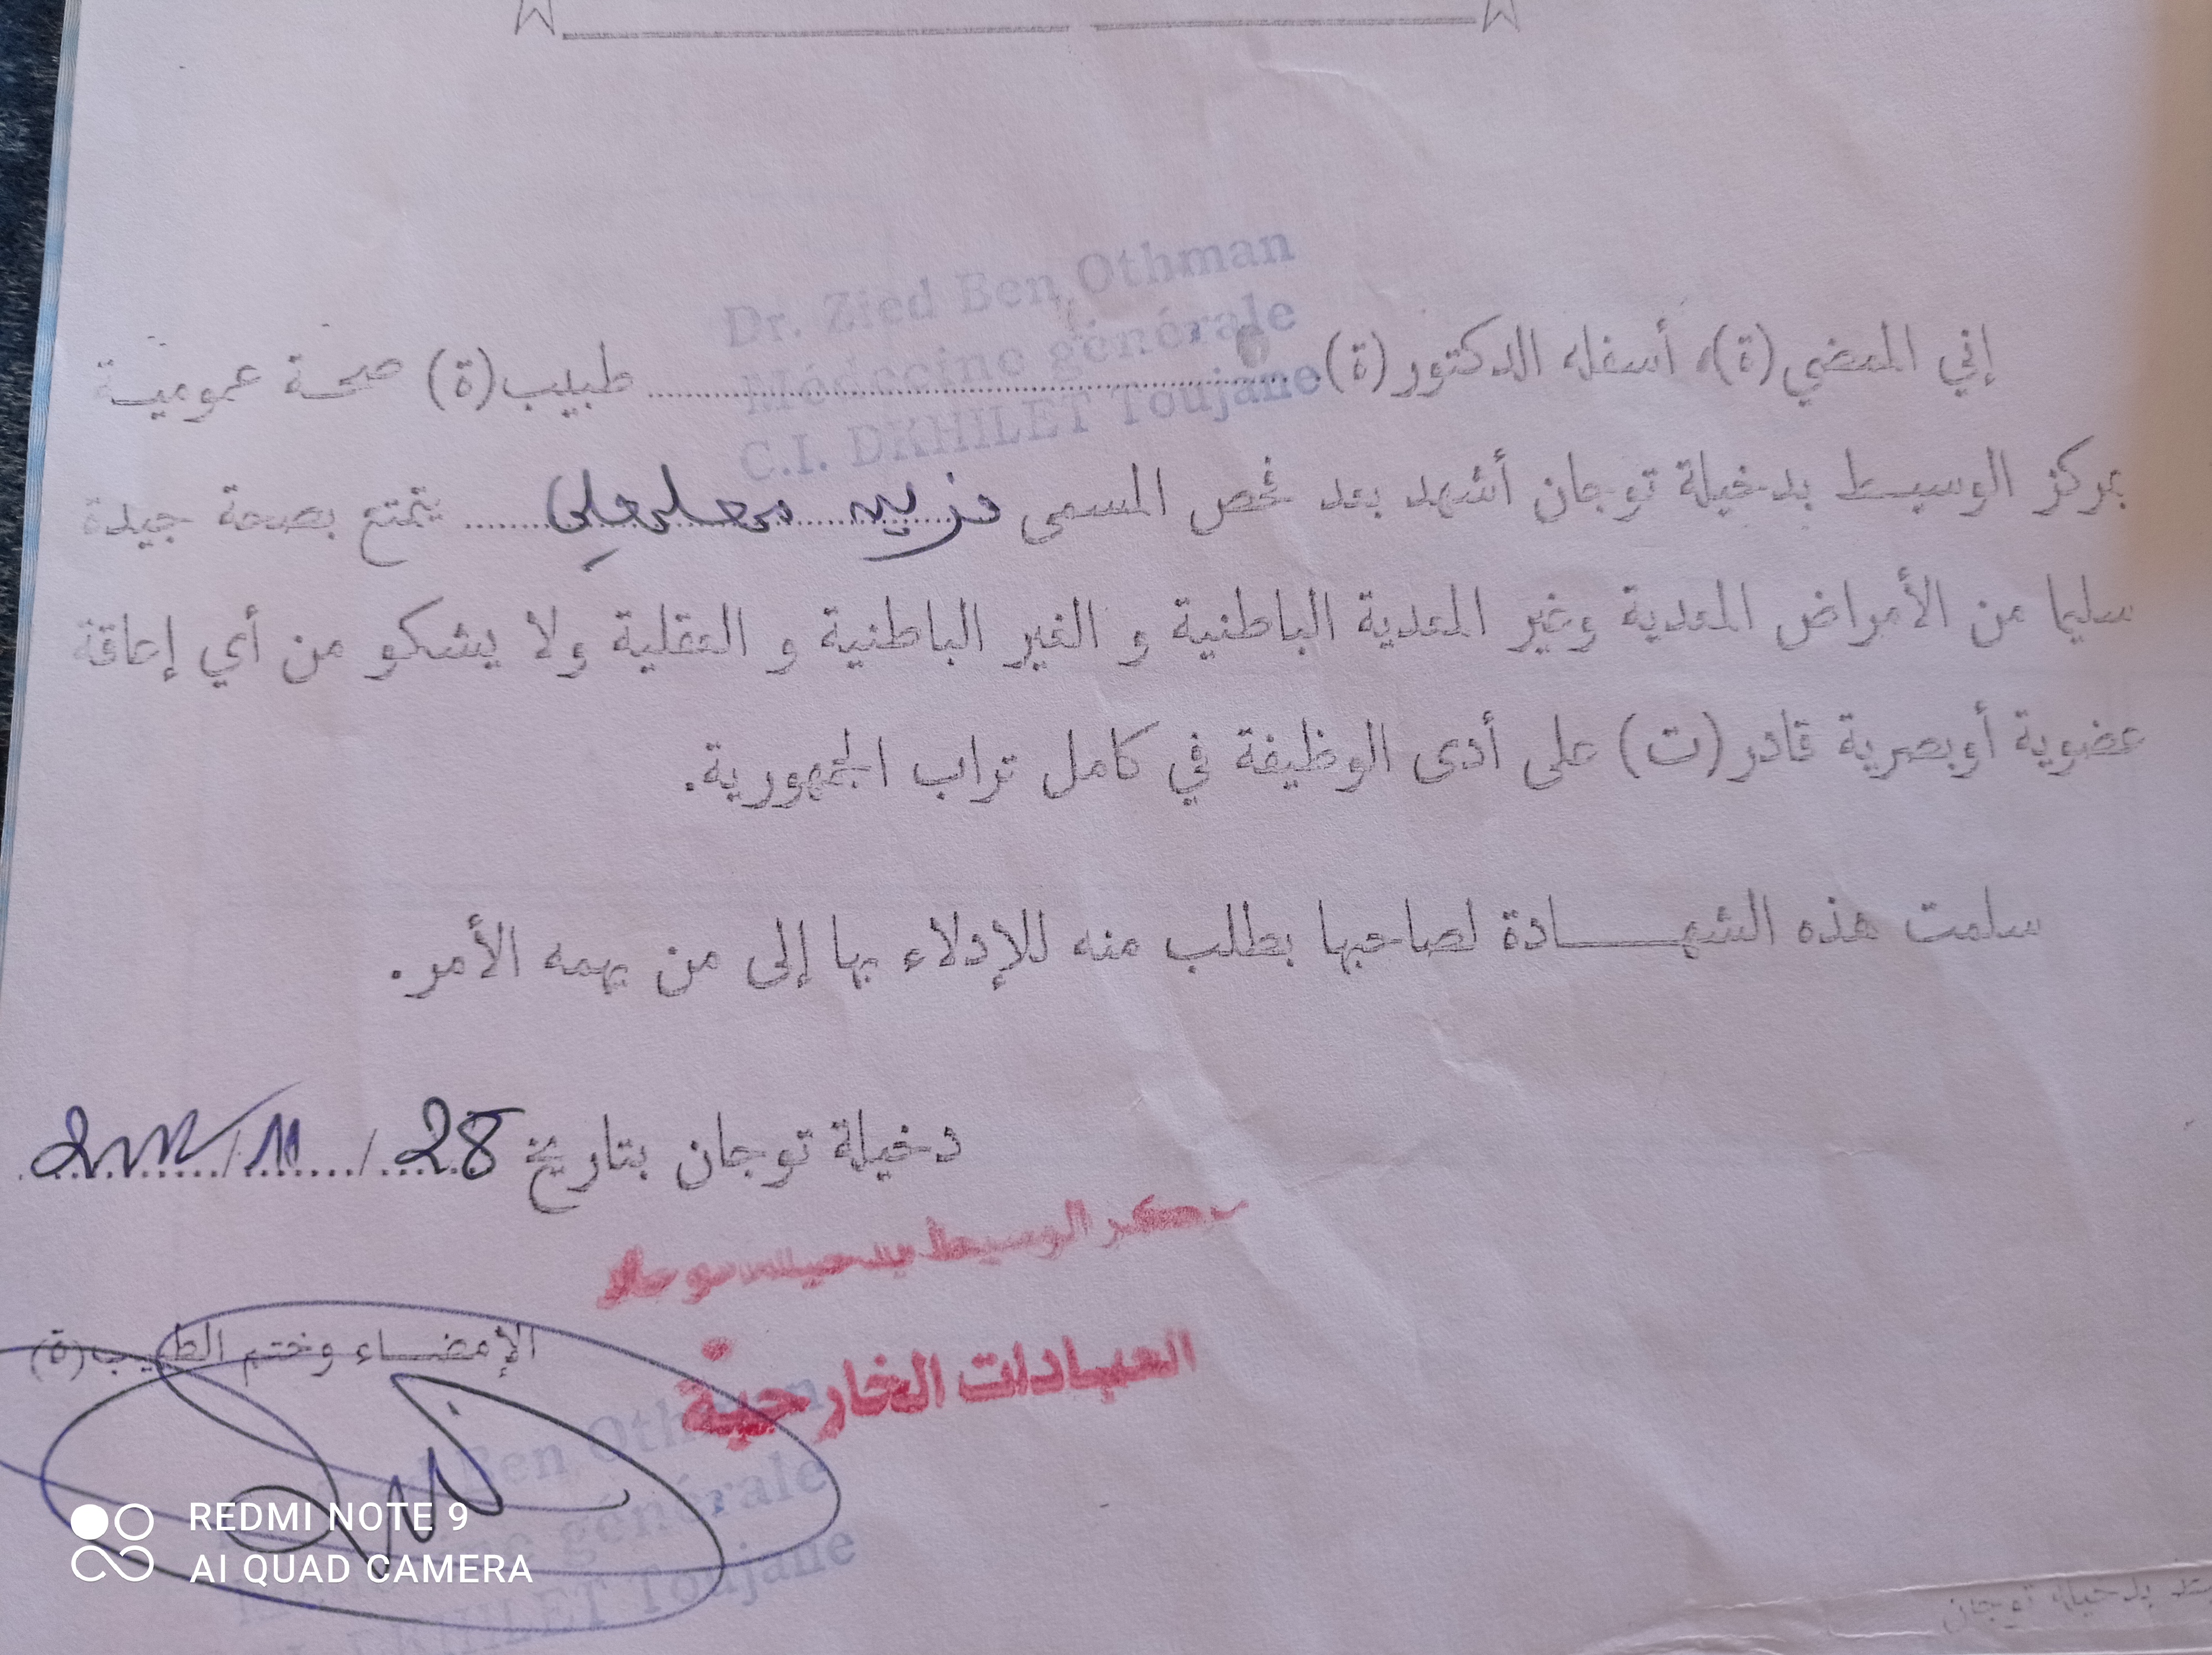 Dr. Zied Ben Othman
Médecine générale
C.I. DKHILET Toujane
إني الممضي (ة)، أسفله الدكتور (ة) طبيب (ة) صحة عمومية
بمركز الوسيط بدخيلة توجان أشهد بعد فحص المسمى يتمتع بصحة جيدة
سليما من الأمراض المعدية وغير المعدية الباطنية و الغير الباطنية و العقلية ولا يشكو من أي إعاقة
عضوية أوبصرية قادر (ت) على أدى الوظيفة في كامل تراب الجمهورية.
سلمت هذه الشهـــــادة لصاحبها بطلب منه للإدلاء بها إلى من يهمه الأمر.
دخيلة توجان بتاريخ 28 / 11 /
الوسيط
العيادات الخارجية
الإمضــاء وختم الطبيب (ة)
Ben Othman
générale
DKHILET Toujane
REDMI NOTE 9
AI QUAD CAMERA
بدخيلة توجان